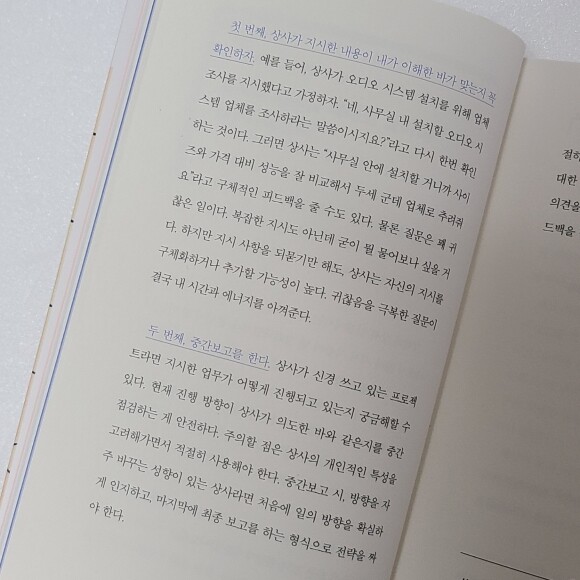 첫 번째, 상사가 지시한 내용이 내가 이해한 바가 맞는지 꼭
확인하자. 예를 들어, 상사가 오디오 시스템 설치를 위해 업체
조사를 지시했다고 가정하자. "네, 사무실 내 설치할 오디오 시
스템 업체를 조사하라는 말씀이시지요?"라고 다시 한번 확인
하는 것이다. 그러면 상사는 "사무실 안에 설치할 거니까 사이
즈와 가격 대비 성능을 잘 비교해서 두세 군데 업체로 추려줘
요"라고 구체적인 피드백을 줄 수도 있다. 물론 질문은 꽤 귀
찮은 일이다. 복잡한 지시도 아닌데 굳이 뭘 물어보나 싶을 거
다. 하지만 지시 사항을 되묻기만 해도, 상사는 자신의 지시를
구체화하거나 추가할 가능성이 높다. 귀찮음을 극복한 질문이
결국 내 시간과 에너지를 아껴준다.
두 번째, 중간보고를 한다. 상사가 신경 쓰고 있는 프로젝
트라면 지시한 업무가 어떻게 진행되고 있는지 궁금해할 수
있다. 현재 진행 방향이 상사가 의도한 바와 같은지를 중간
점검하는 게 안전하다. 주의할 점은 상사의 개인적인 특성을
고려해가면서 적절히 사용해야 한다. 중간보고 시, 방향을 자
주 바꾸는 성향이 있는 상사라면 처음에 일의 방향을 확실하
게 인지하고, 마지막에 최종 보고를 하는 형식으로 전략을 짜
야 한다.
절하
대한
의견을
드백을